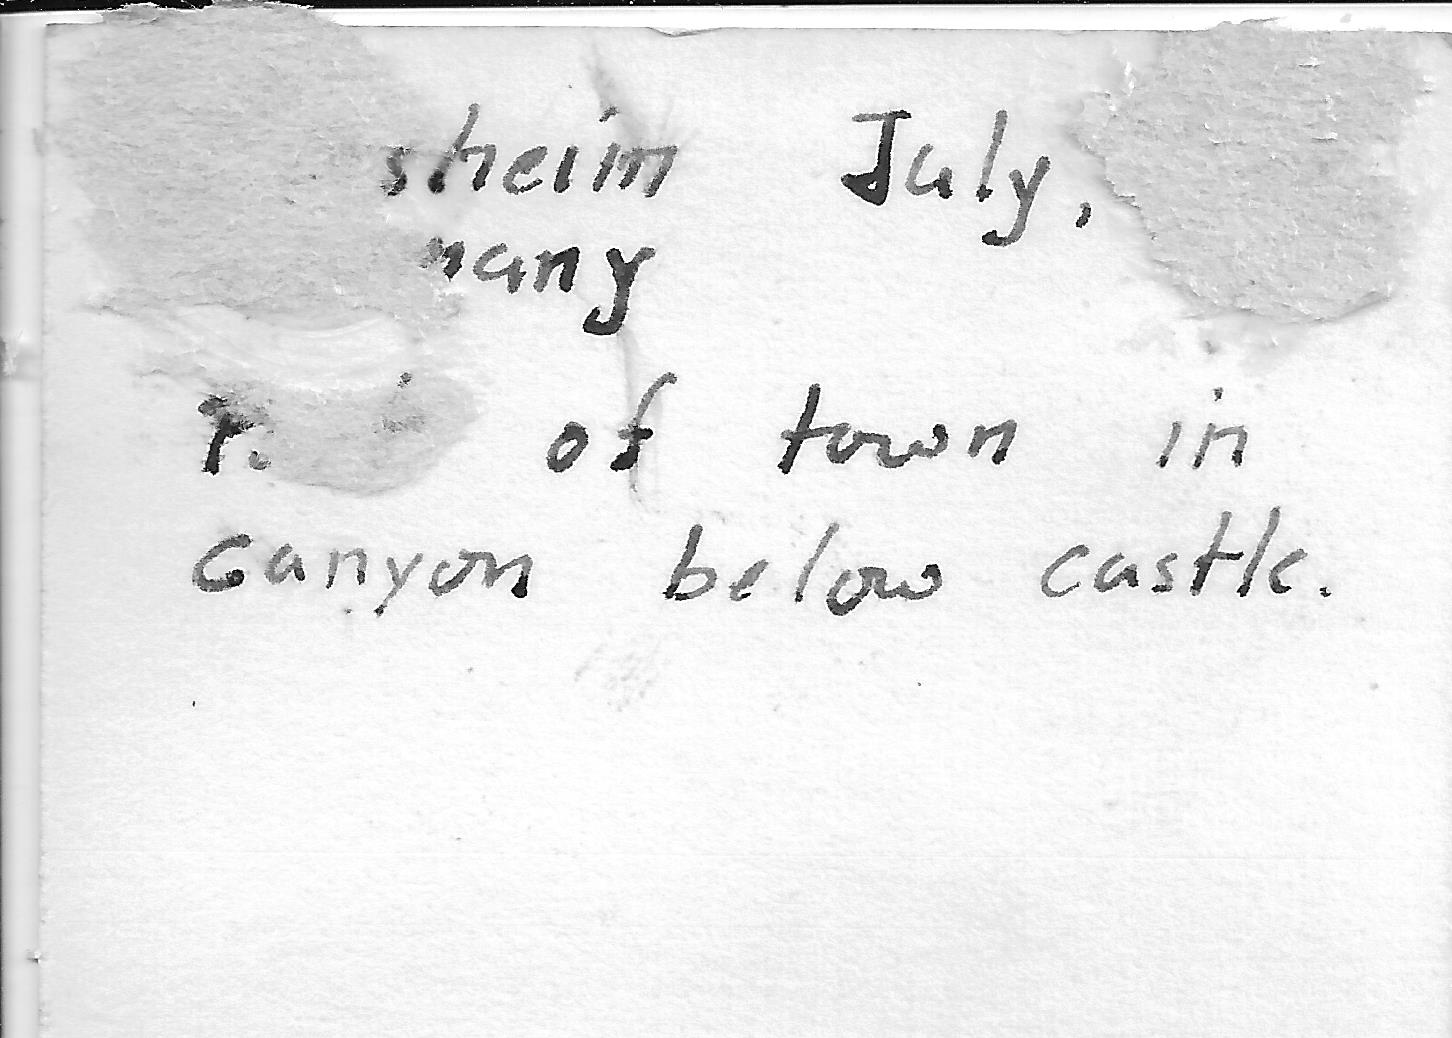 sheim July,
many
of town in
canyon below castle.